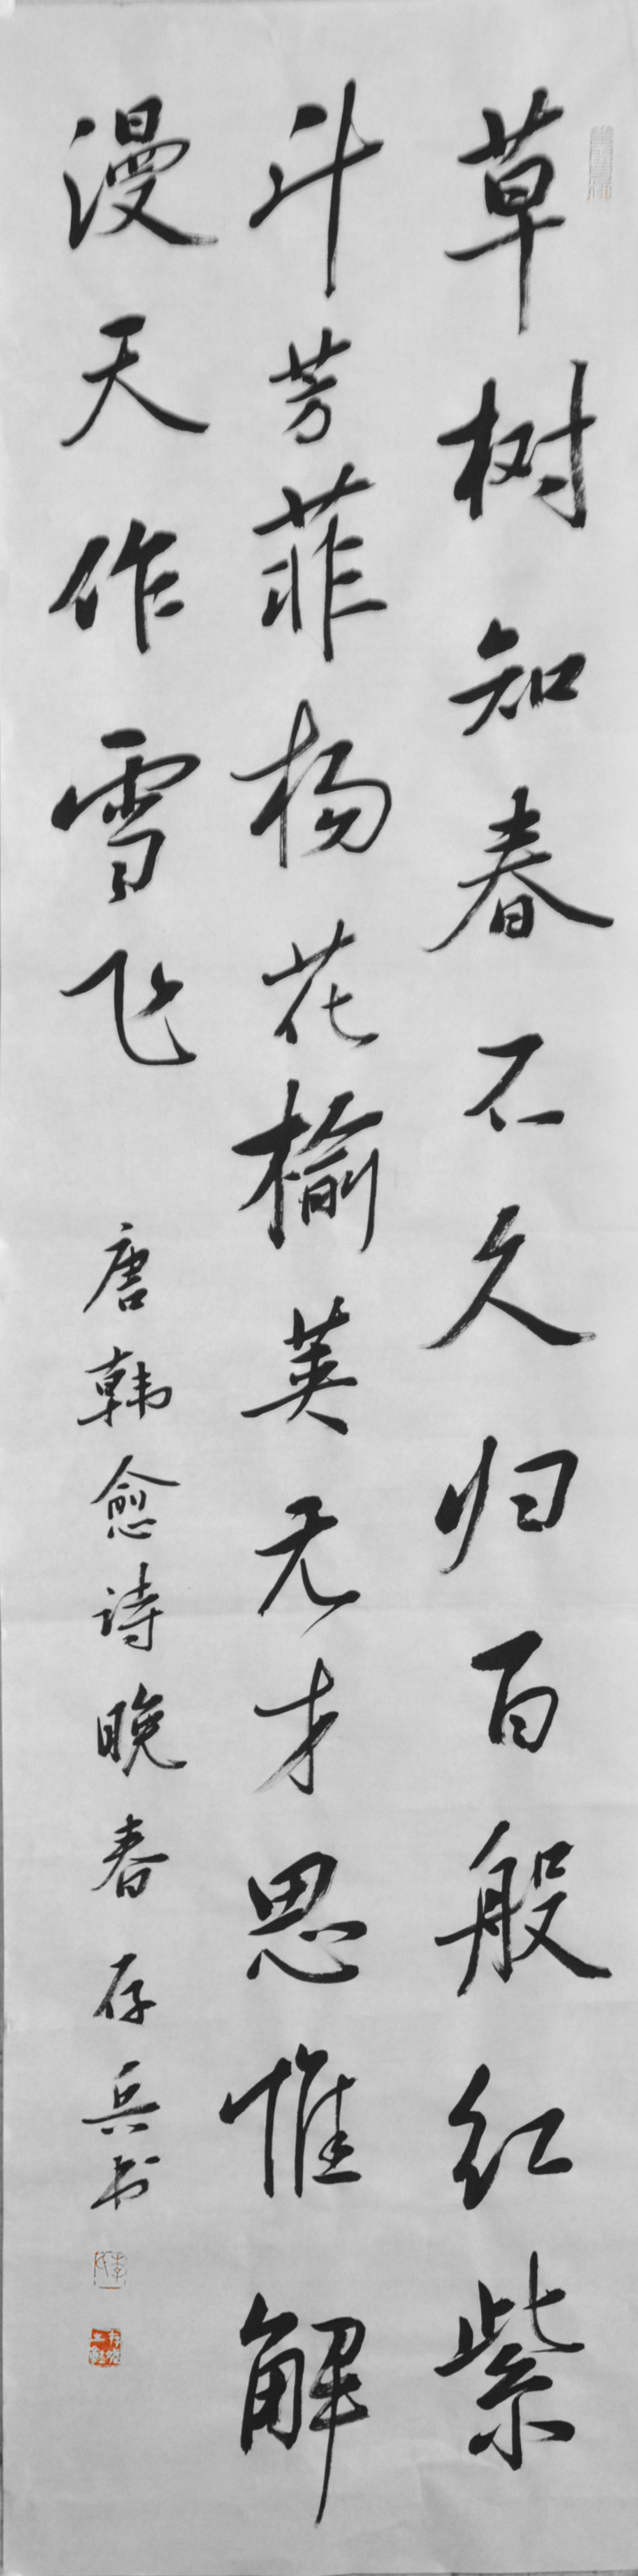 草树知春不久归百般红紫
斗芳菲杨花榆荚无才思惟解
漫天作雪飞
唐韩愈诗晚春存兵书